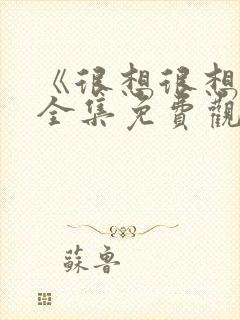 《很想很想
全集免費觀
蘇魯